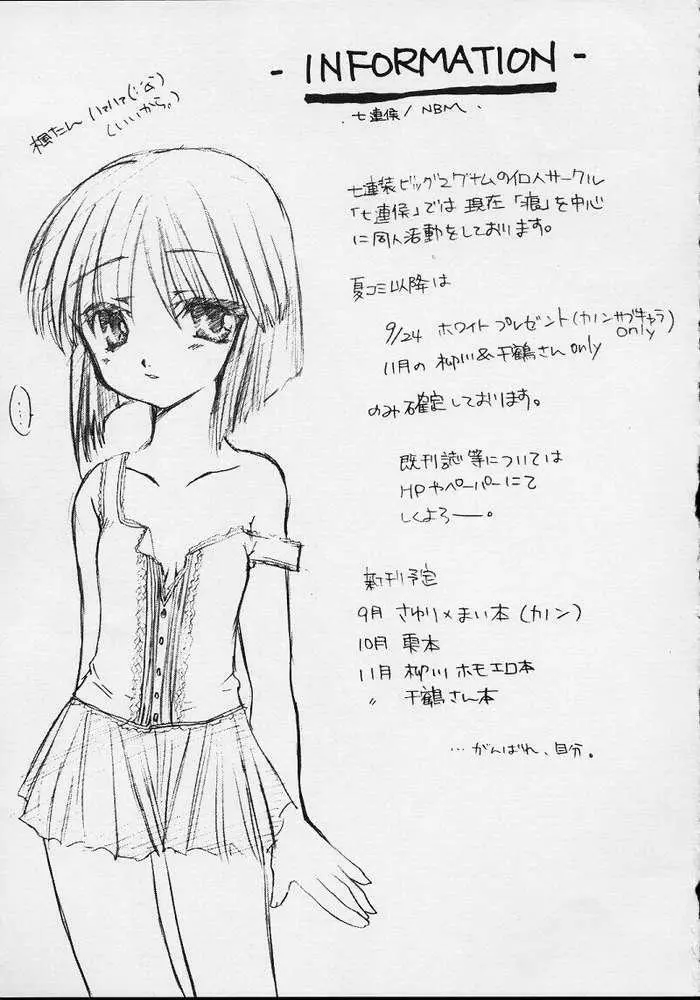 - INFORMATION -
七連侯 / NBM.
楓たん ハァハァ(;´Д`)
(いいから。)
七連装ビッグマグナムの個人サークル
「七連侯」では 現在「痕」を中心
に同人活動をしております。
夏コミ以降は
9/24 ホワイトプレゼント(カノンサブキャラ
only)
11月の 柳川&千鶴さん only
のみ確定しております。
既刊誌等については
HPやペーパーにて
しくよろー。
...
新刊予定
9月 さゆり×まい本(カノン)
10月 雫本
11月 柳川 ホモエロ本
〃 千鶴さん本
…がんばれ、自分。